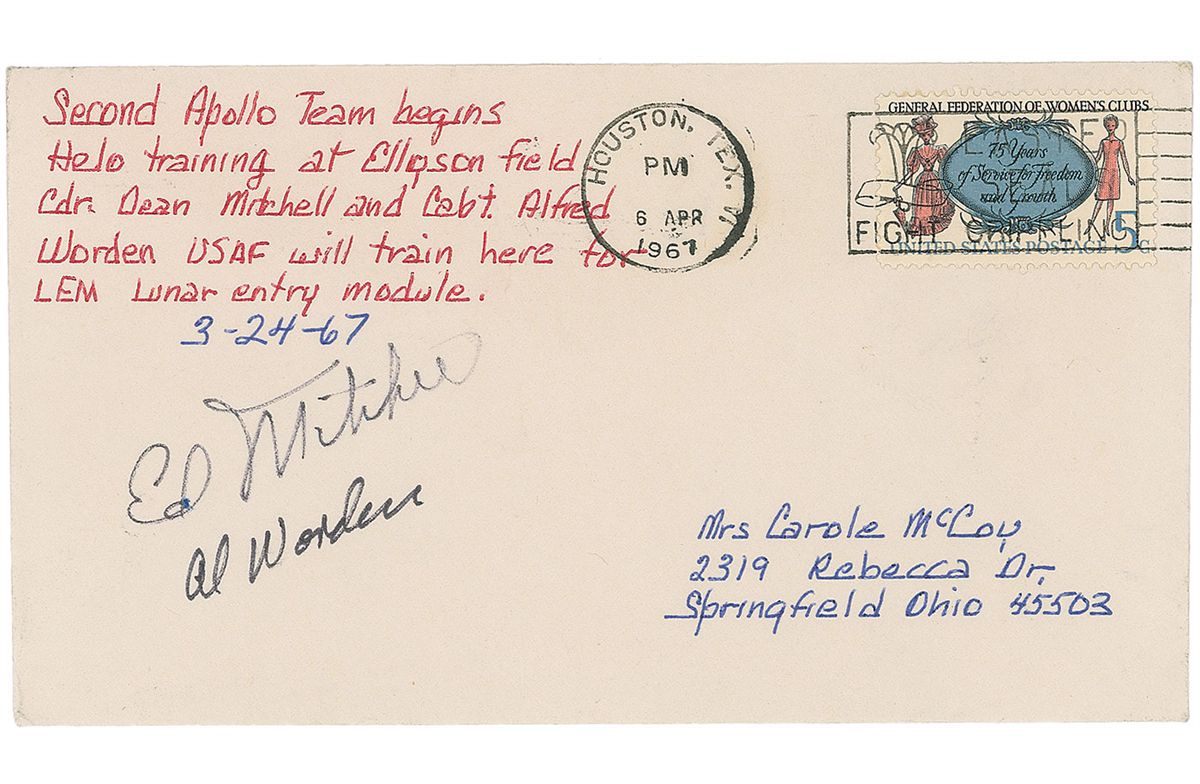 Second Apollo Team begins
Helo training at Ellyson field
Cdr. Dean Mitchell and Capt. Alfred
Worden USAF will train here for
LEM Lunar entry module.
3-24-67
Ed Mitchell
Al Worden
HOUSTON, TEX.
PM
6 APR
1967
GENERAL FEDERATION OF WOMEN'S CLUBS
75 Years
of Service for Freedom
and Growth
FIGHT
UNITED STATES POSTAGE 5c
Mrs Carole McCoy
2319 Rebecca Dr.
Springfield Ohio 45503